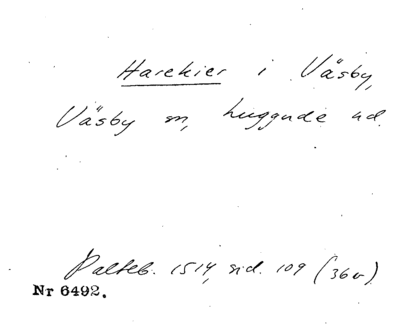 Harekier i Väsby,
Väsby sn, huggude ud.
Palteb. 1514, sid. 109 (36v)
Nr 6492.